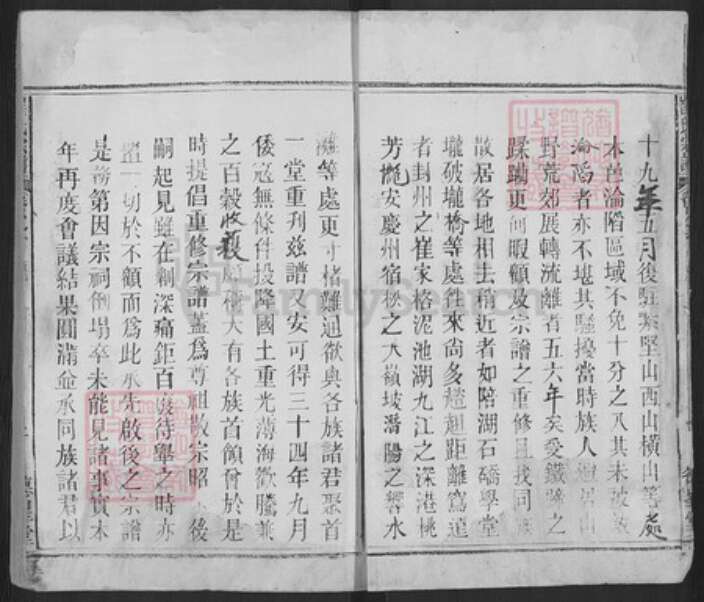 十九年五月復駐紮堅山西山橫山等處
本邑淪陷區域不免十分之八其未被
淪陷者亦不堪其騷擾當時族人避居山
野荒郊展轉流離者五六年矣受鐵蹄之
蹂躪更何暇顧及宗譜之重修且我同族
散居各地相去稍近者如陪湖石磯學堂
壠破壠橋等處往來尚多趑趄距離寫遠
者封州之崔家格泥池湖九江之深港桃
芳壠安慶州宿松之大嶺坡潛陽之響水
灘等處更寸楮難通欲與各族諸君聚首
一堂重刊茲譜又安可得三十四年九月
倭寇無條件投降國土重光薄海歡騰兼
之百穀收穫大有各族首領曾於是
時提倡重修宗譜蓋為尊祖敬宗昭後
嗣起見雖在創深痛鉅百廢待舉之時亦
置一切於不顧而為此承先啟後之宗譜
是務第因宗祠倒塌卒未能見諸事實本
年再度會議結果圓滿僉承同族諸君以
FamilySearch